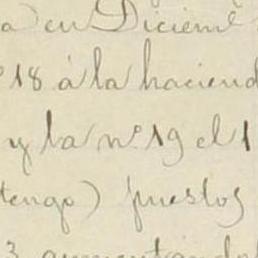 a en Diciem̃
18 á la haciend
y la nº 19 el 1
tengo) puestos
3 aumentándo